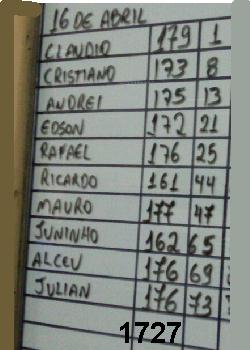 16 DE ABRIL
CLAUDIO 179 1
CRISTIANO 173 8
ANDREI 175 13
EDSON 172 21
RAFAEL 176 25
RICARDO 161 44
MAURO 177 47
JUNINHO 162 65
ALCEU 176 69
JULIAN 176 73
1727